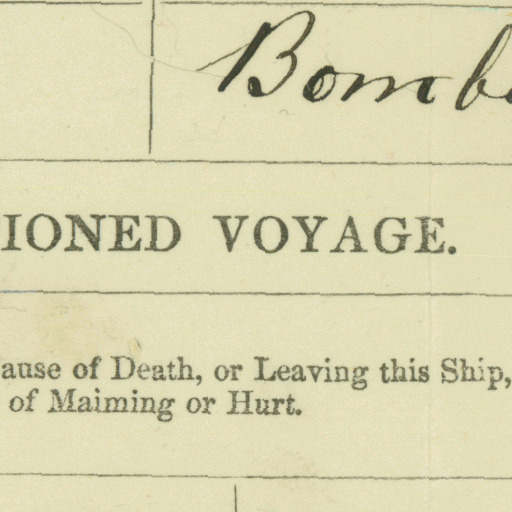 Bomb
IONED VOYAGE.
ause of Death, or Leaving this Ship,
of Maiming or Hurt.